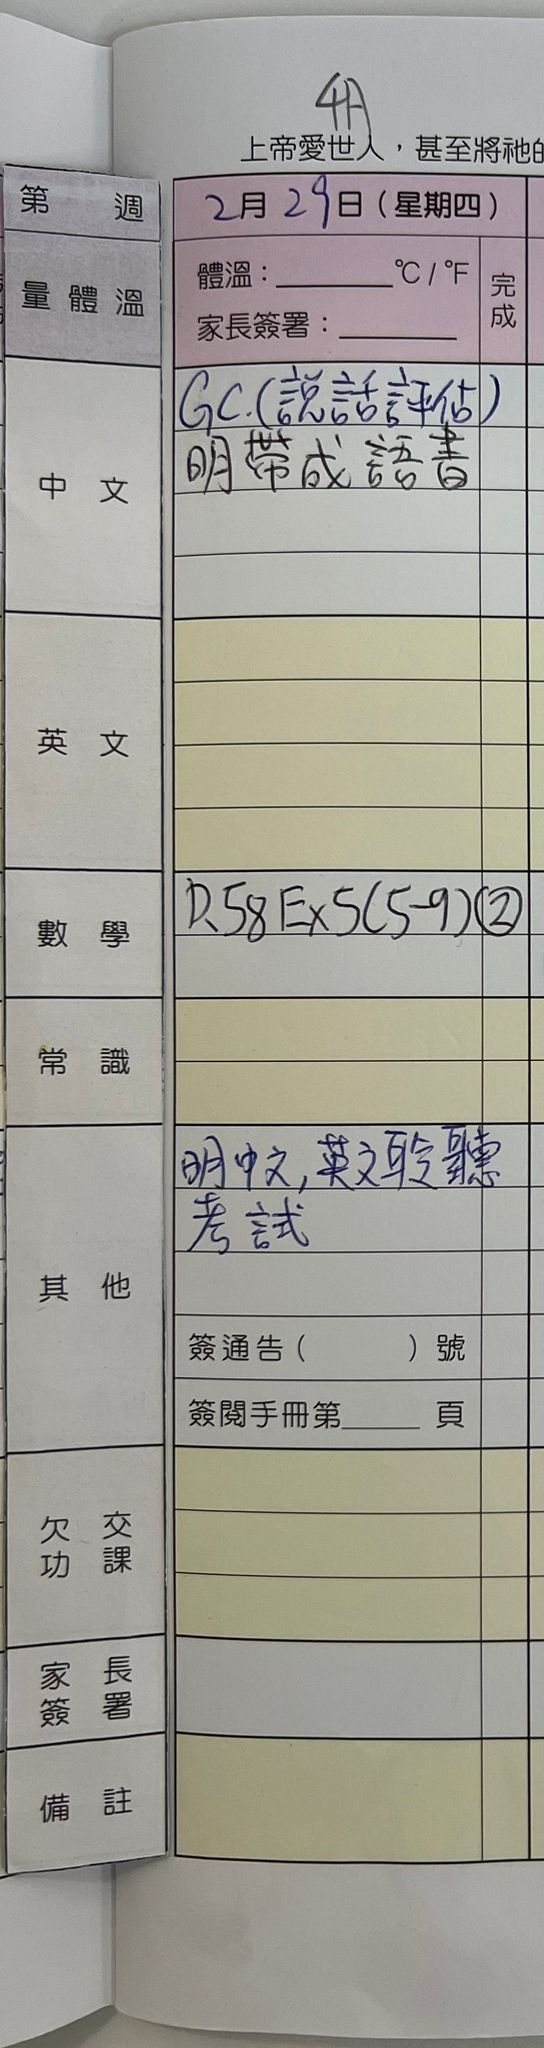 4A
上帝愛世人，甚至將祂的
第 週
2月29日（星期四）
量體溫
體溫：________℃/℉
家長簽署：________
完成
中文
GC.(說話評估)
明帶成語書
英文
數學
P.58 Ex5(5-9)②
常識
其他
明中文,英文聆聽
考試
簽通告（ ）號
簽閱手冊第____頁
欠交
功課
家長
簽署
備註